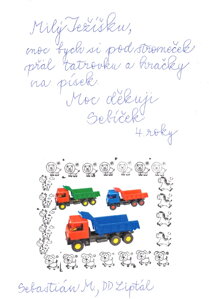 Milý Ježíšku,
moc bych si pod stromeček
přál tatrovku a hračky
na písek.
Moc děkuji
Sebíček
4 roky
Sebastián M, DD Liptál